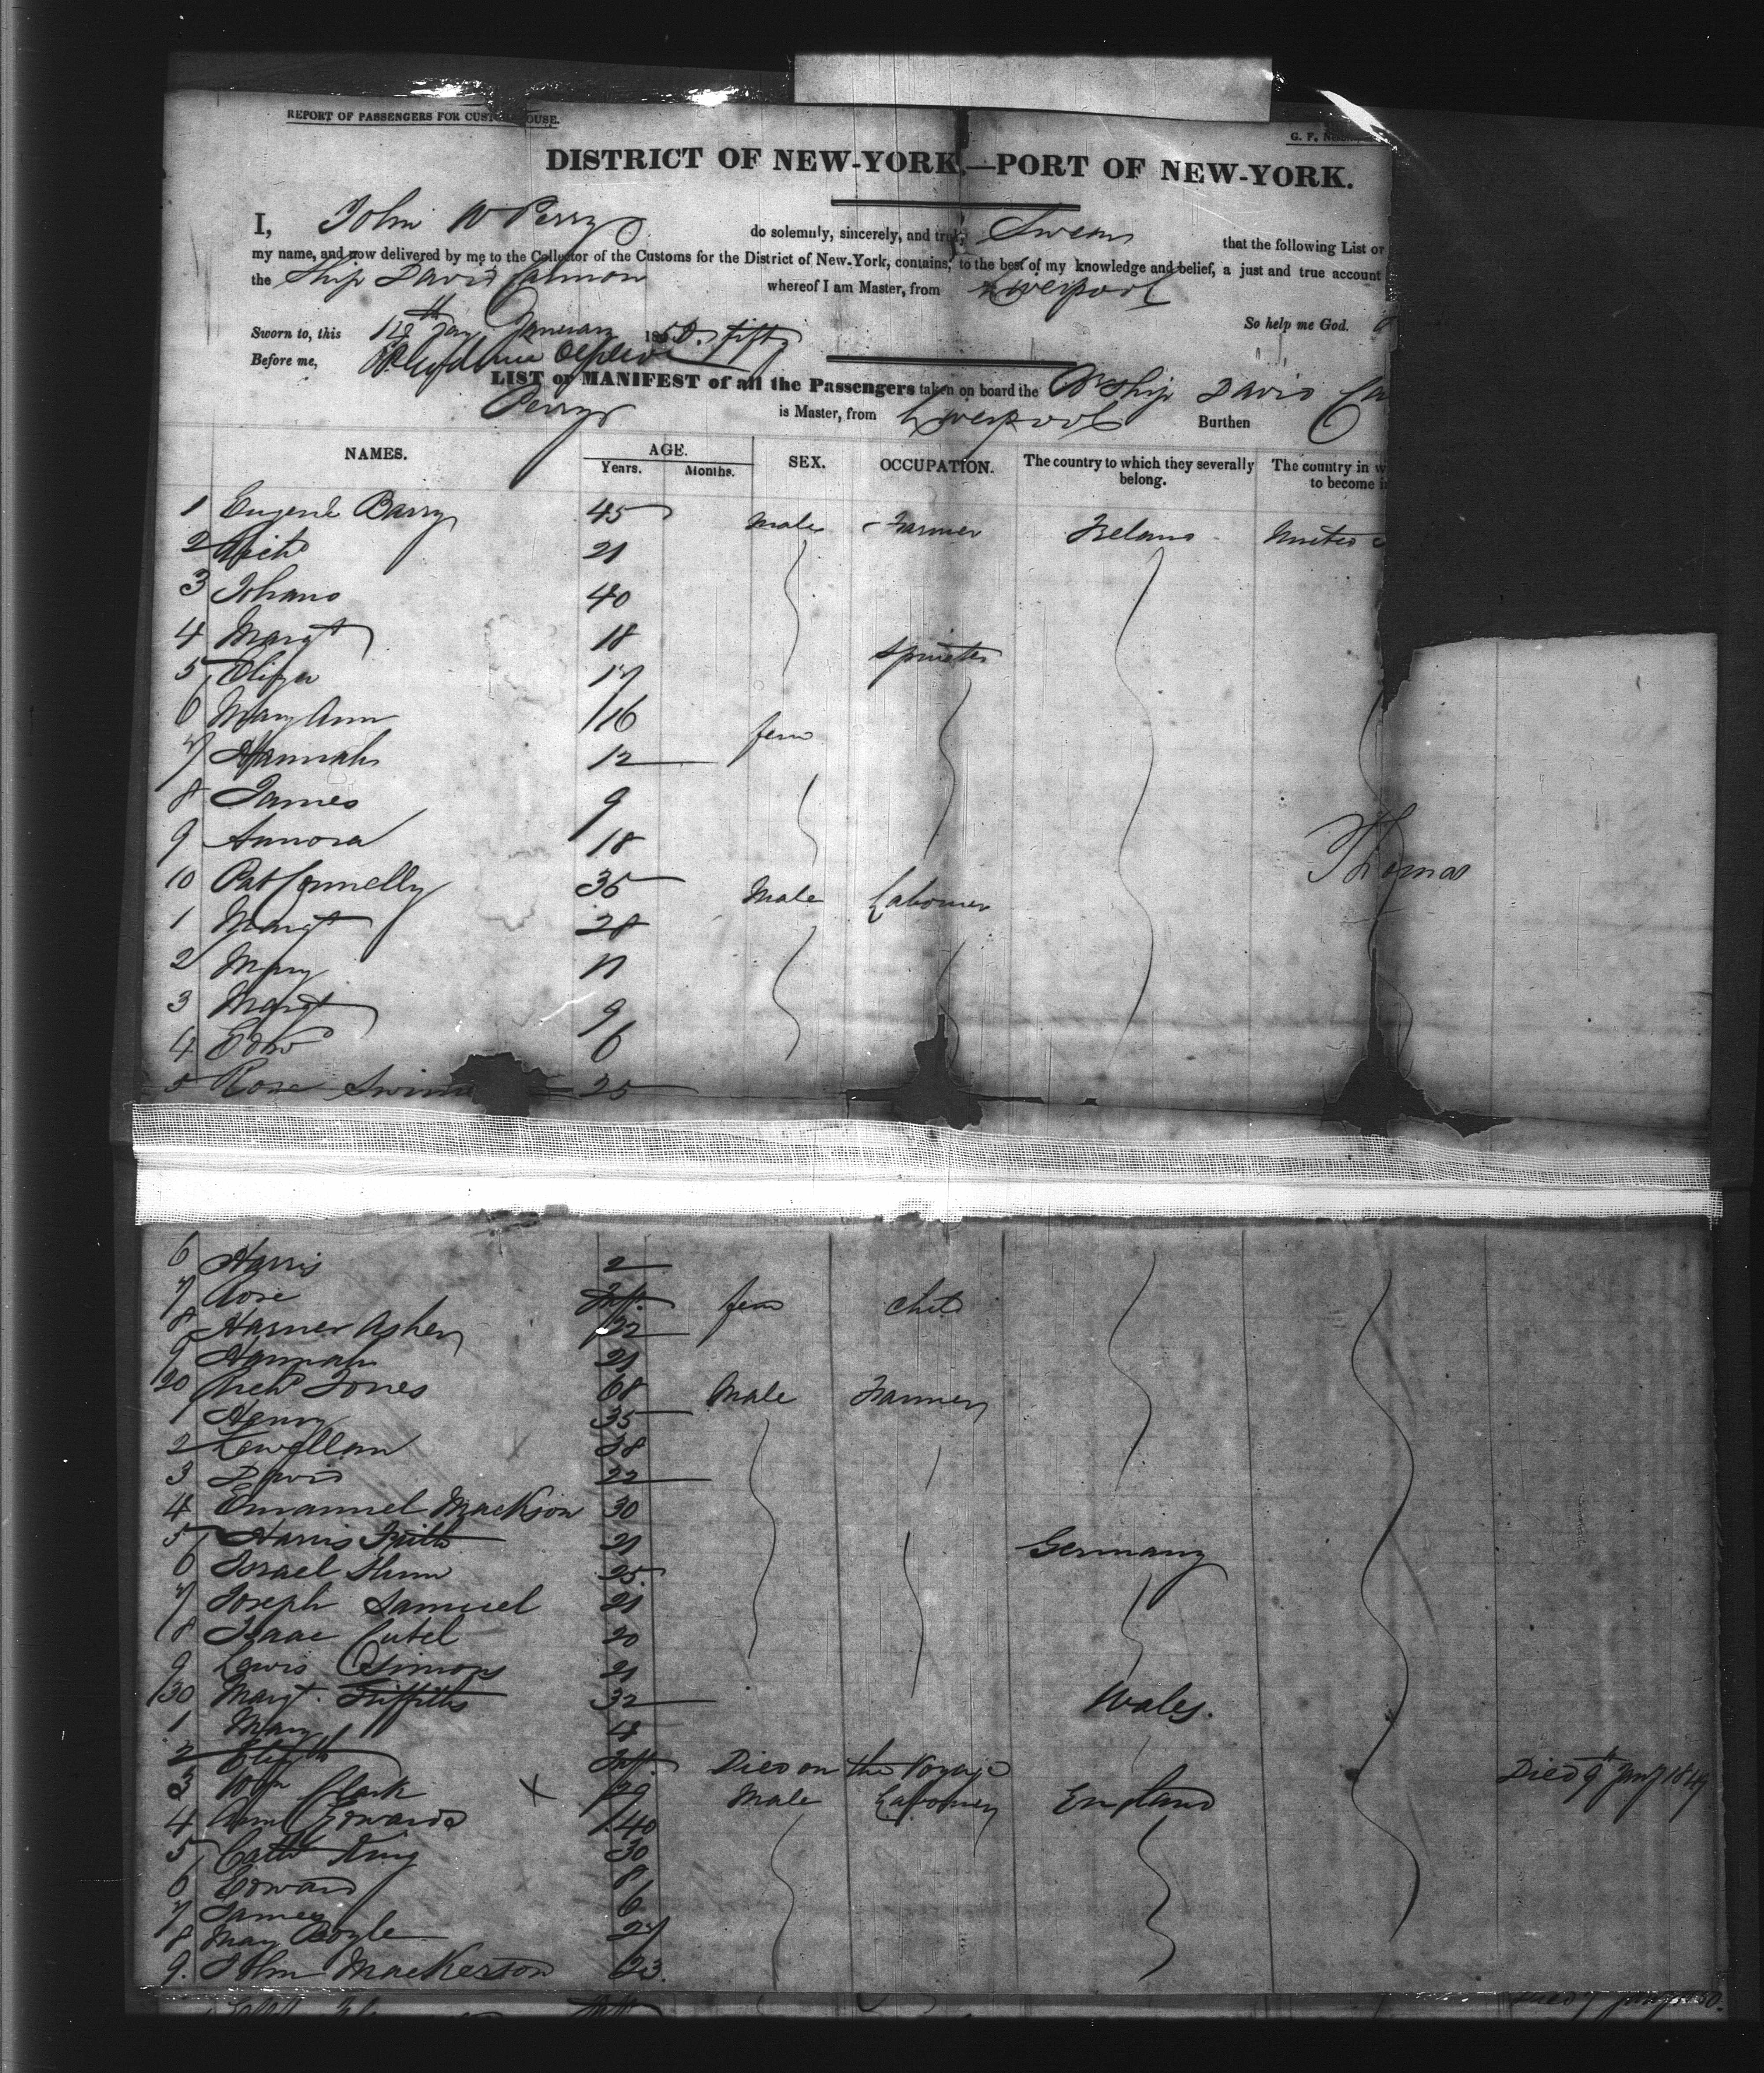 REPORT OF PASSENGERS FOR CUSTOM HOUSE.
G. F.
DISTRICT OF NEW-YORK.—PORT OF NEW-YORK.
I, John W Perry do solemnly, sincerely, and truly Swear that the following List or
my name, and now delivered by me to the Collector of the Customs for the District of New-York, contains, to the best of my knowledge and belief, a just and true account
the Ship David Cannon whereof I am Master, from Liverpool
So help me God.
Sworn to, this day January 1850. fifty
Before me,
LIST or MANIFEST of all the Passengers taken on board the Ship David Ca
Perry is Master, from Liverpool Burthen
NAMES. AGE. Years. Months. SEX. OCCUPATION. The country to which they severally belong. The country in w
to become i
1 Eugene Barry 45 Male Farmer Ireland United
2 Richd 21
3 Johano 40
4 Margt 18 Spinster
5 Eliza 17
6 Mary Ann 16 fem
7 Hannah 12
8 James 9
9 Annora 18 Thomas
10 Pat Connelly 35 Male Labourer
1 Margt 28
2 Mary 11
3 Margt 9
4 Edwd 6
5 Rose 25
6 Harris 2
7 Rose Inft. fem child
8 Harner Asher 22
9 Hannah 21
20 Richd Jones 68 Male Farmer
1 Henry 35
2 Lewellam 38
3 David 22
4 Emannuel Mackson 30
5 Harris 21 Germany
6 Israel 25
7 Joseph Samuel 21
8 Isaac Cutel 20
9 Lewis Simons 21
30 Margt. Griffiths 32 Wales.
1 Mary 4
2 Elizth Inft. Died on the Voyage Died 9th Jany 1849
3 Wm Clark 29 Male Labourer England
4 Ann Edwards 40
5 Cathe King 30
6 Edward 8
7 James 6
8 May Boyle 27
9. John Mackerson 23.